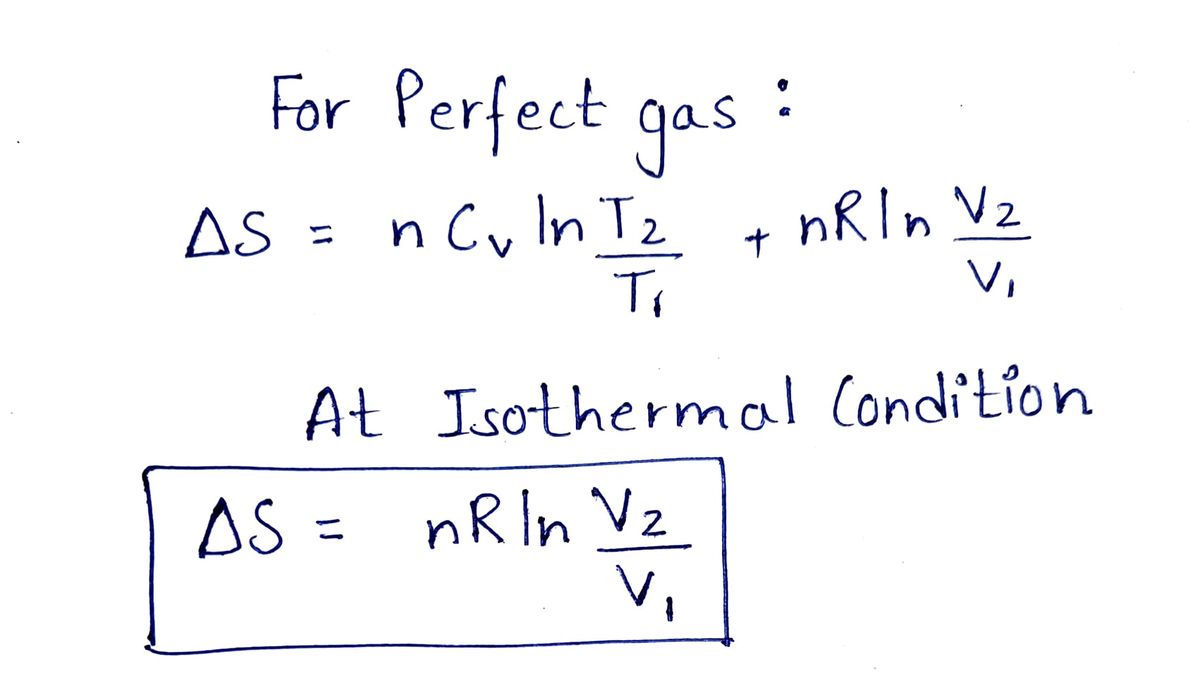 For Perfect gas :
ΔS = n Cv ln T2/T1 + nR ln V2/V1
At Isothermal Condition
ΔS = nR ln V2/V1